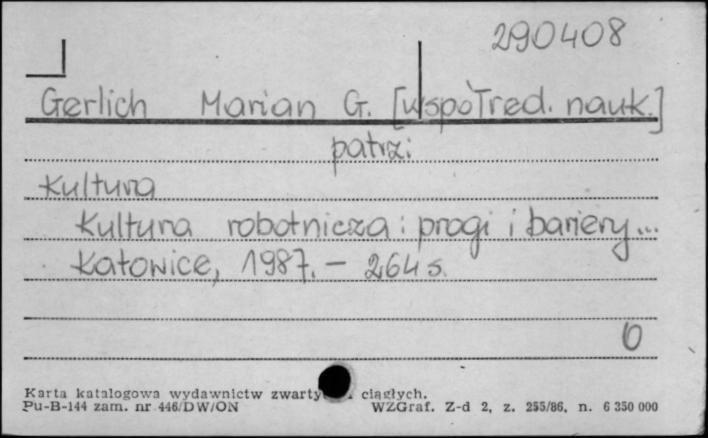 290408
Gerlich Marian G. [współred. nauk.]
patrzi
Kultura
Kultura robotnicza : progi i bariery...
Katowice, 1987. - 264 s.
0
Karta katalogowa wydawnictw ciągłych.
Pu-B-144 zam. nr 446/DW/ON WZGraf. Z-d 2, z. 255/86, n. 6 350 000